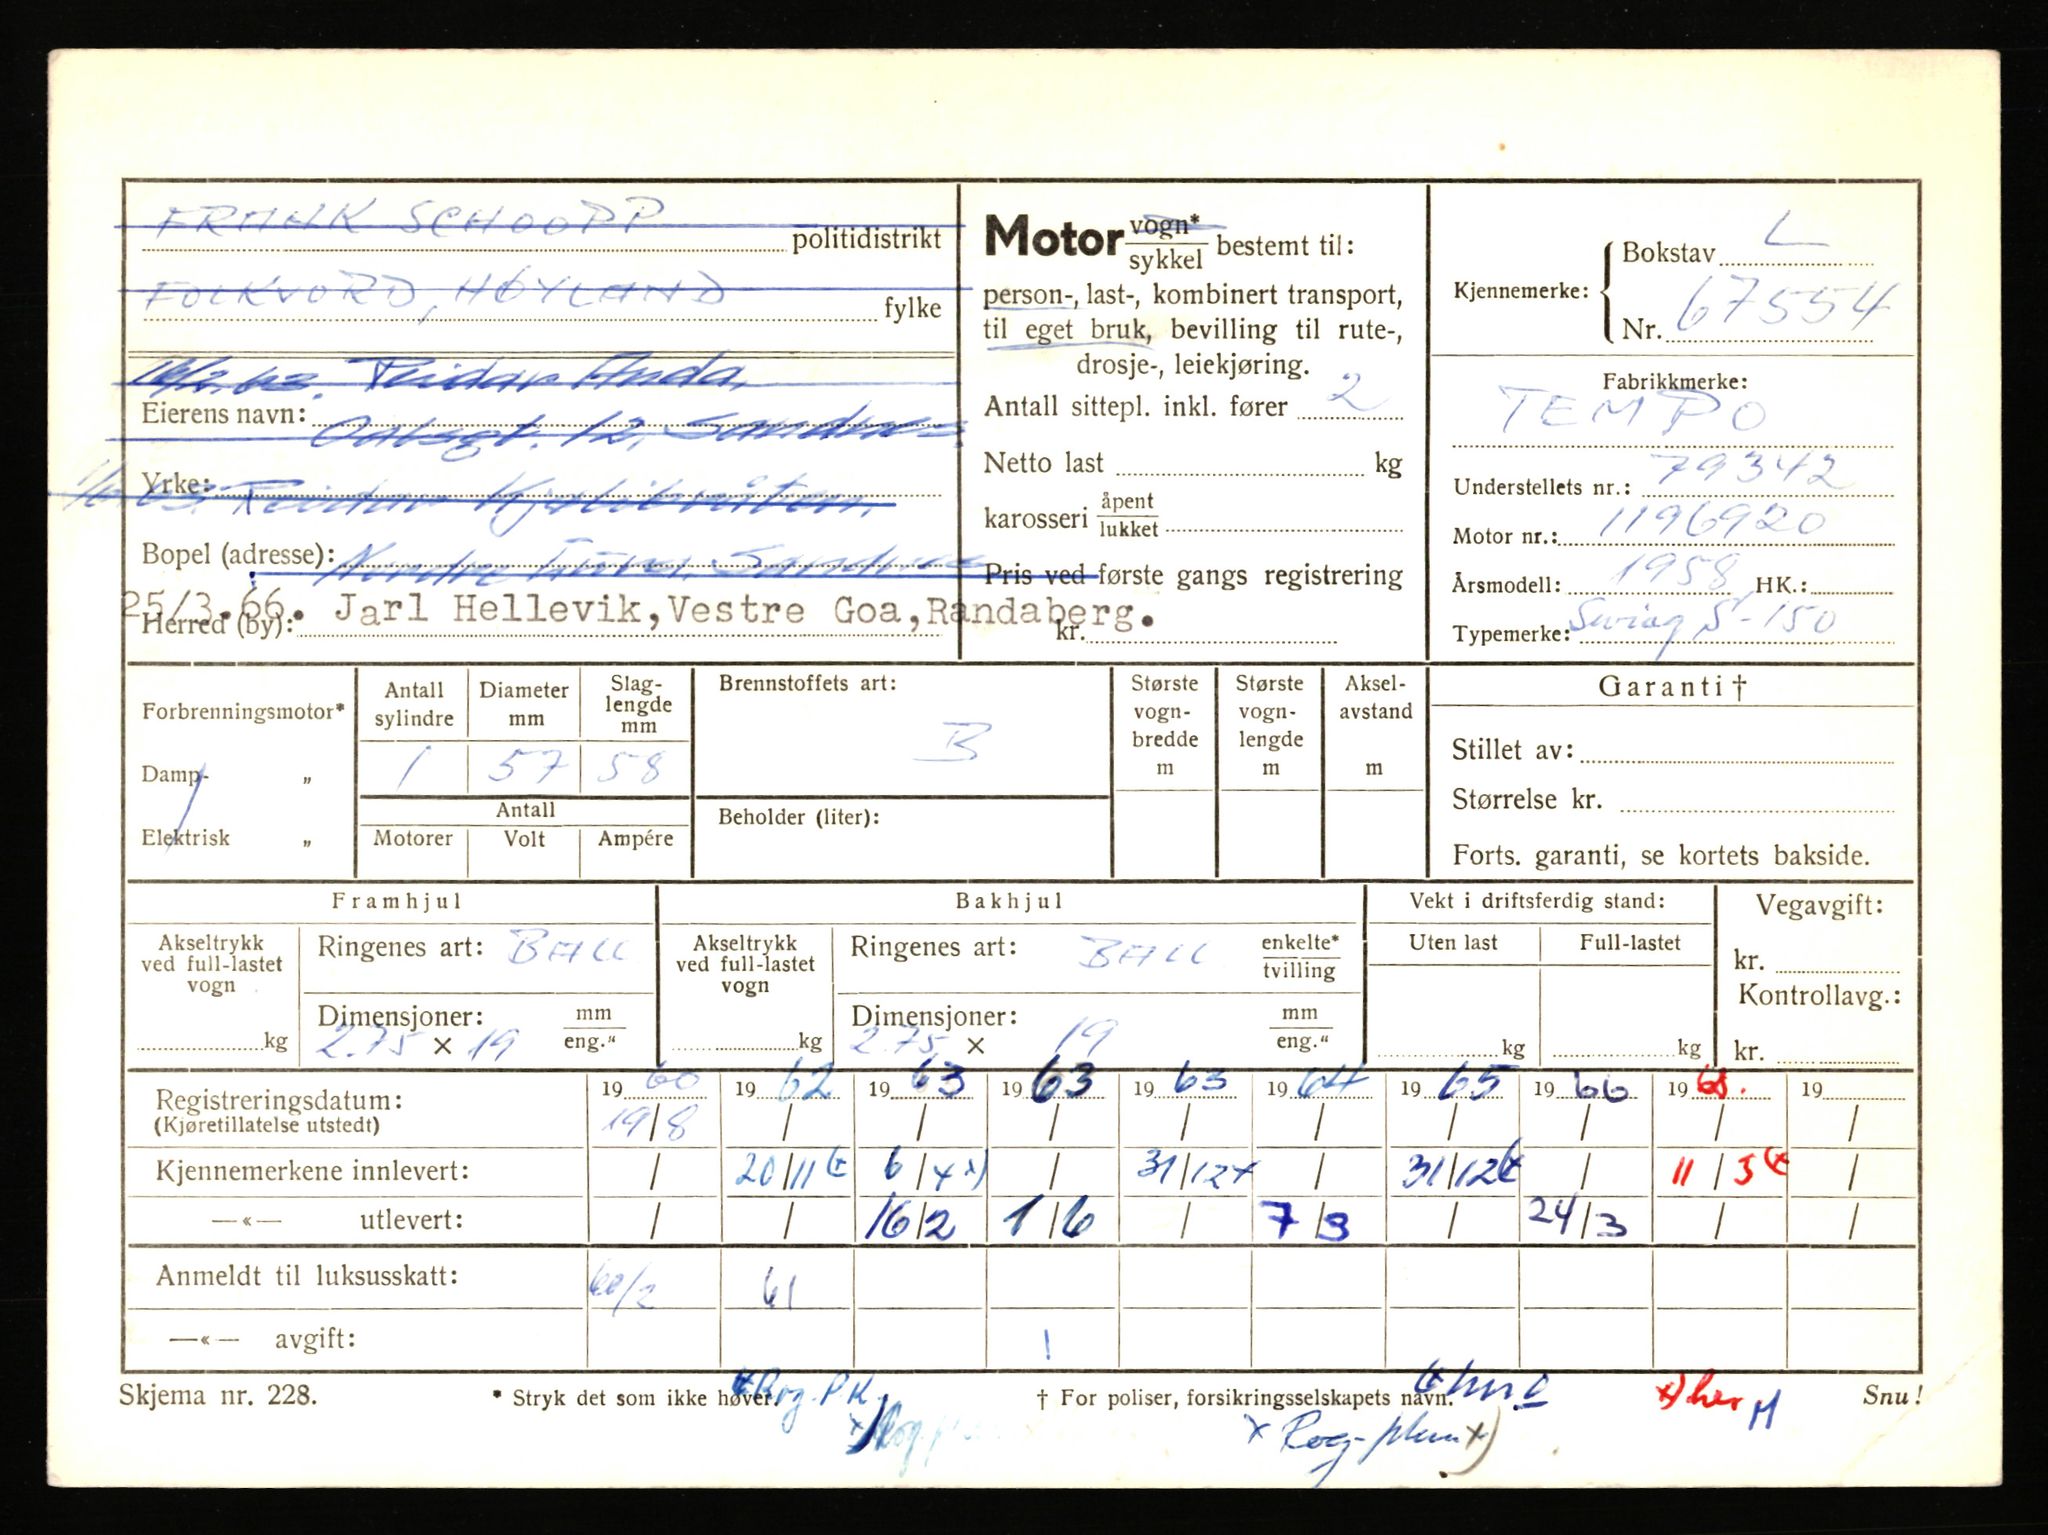 FRANK SCHOOPP politidistrikt
FOLKVORD, HØYLAND fylke
16/2.63. Reidar Anda,
Eierens navn: Oalsgt. 12, Sandnes
Yrke: Reidar
Bopel (adresse): Nordre Sandnes
25/3.66. Jarl Hellevik, Vestre Goa, Randaberg.
Herred (by):
Motor vogn* / sykkel bestemt til:
person-, last-, kombinert transport,
til eget bruk, bevilling til rute-,
drosje-, leiekjøring.
Antall sittepl. inkl. fører 2
Netto last kg
karosseri åpent / lukket
Pris ved første gangs registrering
kr.
Kjennemerke: { Bokstav L
Nr. 67554
Fabrikkmerke:
TEMPO
Understellets nr.: 79342
Motor nr.: 1196920
Årsmodell: 1958 HK.:
Typemerke: Swing S-150
Forbrenningsmotor*
Damp- „
Elektrisk „
Antall sylindre 1
Diameter mm 57
Slag-lengde mm 58
Antall
Motorer Volt Ampére
Brennstoffets art:
B
Beholder (liter):
Største vogn-bredde m
Største vogn-lengde m
Aksel-avstand m
Garanti †
Stillet av:
Størrelse kr.
Forts. garanti, se kortets bakside.
Framhjul
Akseltrykk ved full-lastet vogn
kg
Ringenes art: BALL
Dimensjoner: mm / eng."
2.75 × 19
Bakhjul
Akseltrykk ved full-lastet vogn
kg
Ringenes art: BALL enkelte* / tvilling
Dimensjoner: mm / eng."
2.75 × 19
Vekt i driftsferdig stand:
Uten last Full-lastet
kg kg
Vegavgift:
kr.
Kontrollavg.:
kr.
Registreringsdatum: 1960 1962 1963 1963 1963 1964 1965 1966 1968. 19
(Kjøretillatelse utstedt) 19/8 / / / / / / / / /
Kjennemerkene innlevert: / 20/11 (x 6/4 x) / 31/12 x / 31/12 (x / 11/3 (x /
—«— utlevert: / / 16/2 1/6 / 7/3 / 24/3 / /
Anmeldt til luksusskatt: 60/2 61
—«— avgift:
Skjema nr. 228. * Stryk det som ikke høver. † For poliser, forsikringsselskapets navn. Snu!
x Rog. P.K.
x) Rog.
x Rog-
x) her M